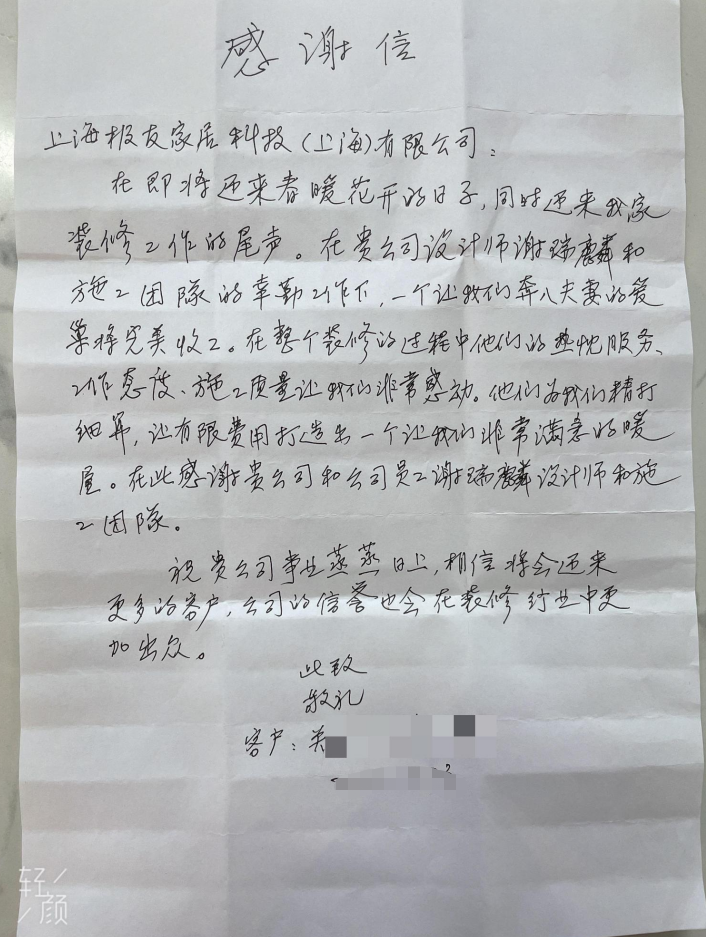 感谢信
上海极友家居科技(上海)有限公司:
在即将迎来春暖花开的日子,同时迎来我家
装修工作的尾声。在贵公司设计师谢瑞麟和
施工团队的辛勤工作下,一个让我们奔八夫妻的爱
巢将完美收工。在整个装修的过程中他们的热忱服务、
工作态度、施工质量让我们非常感动。他们为我们精打
细算,让有限费用打造出一个让我们非常满意的暖
屋。在此感谢贵公司和公司员工谢瑞麟设计师和施
工团队。
祝贵公司事业蒸蒸日上,相信将会迎来
更多的客户,公司的信誉也会在装修行业中更
加出众。
此致
敬礼
客户:关
轻颜